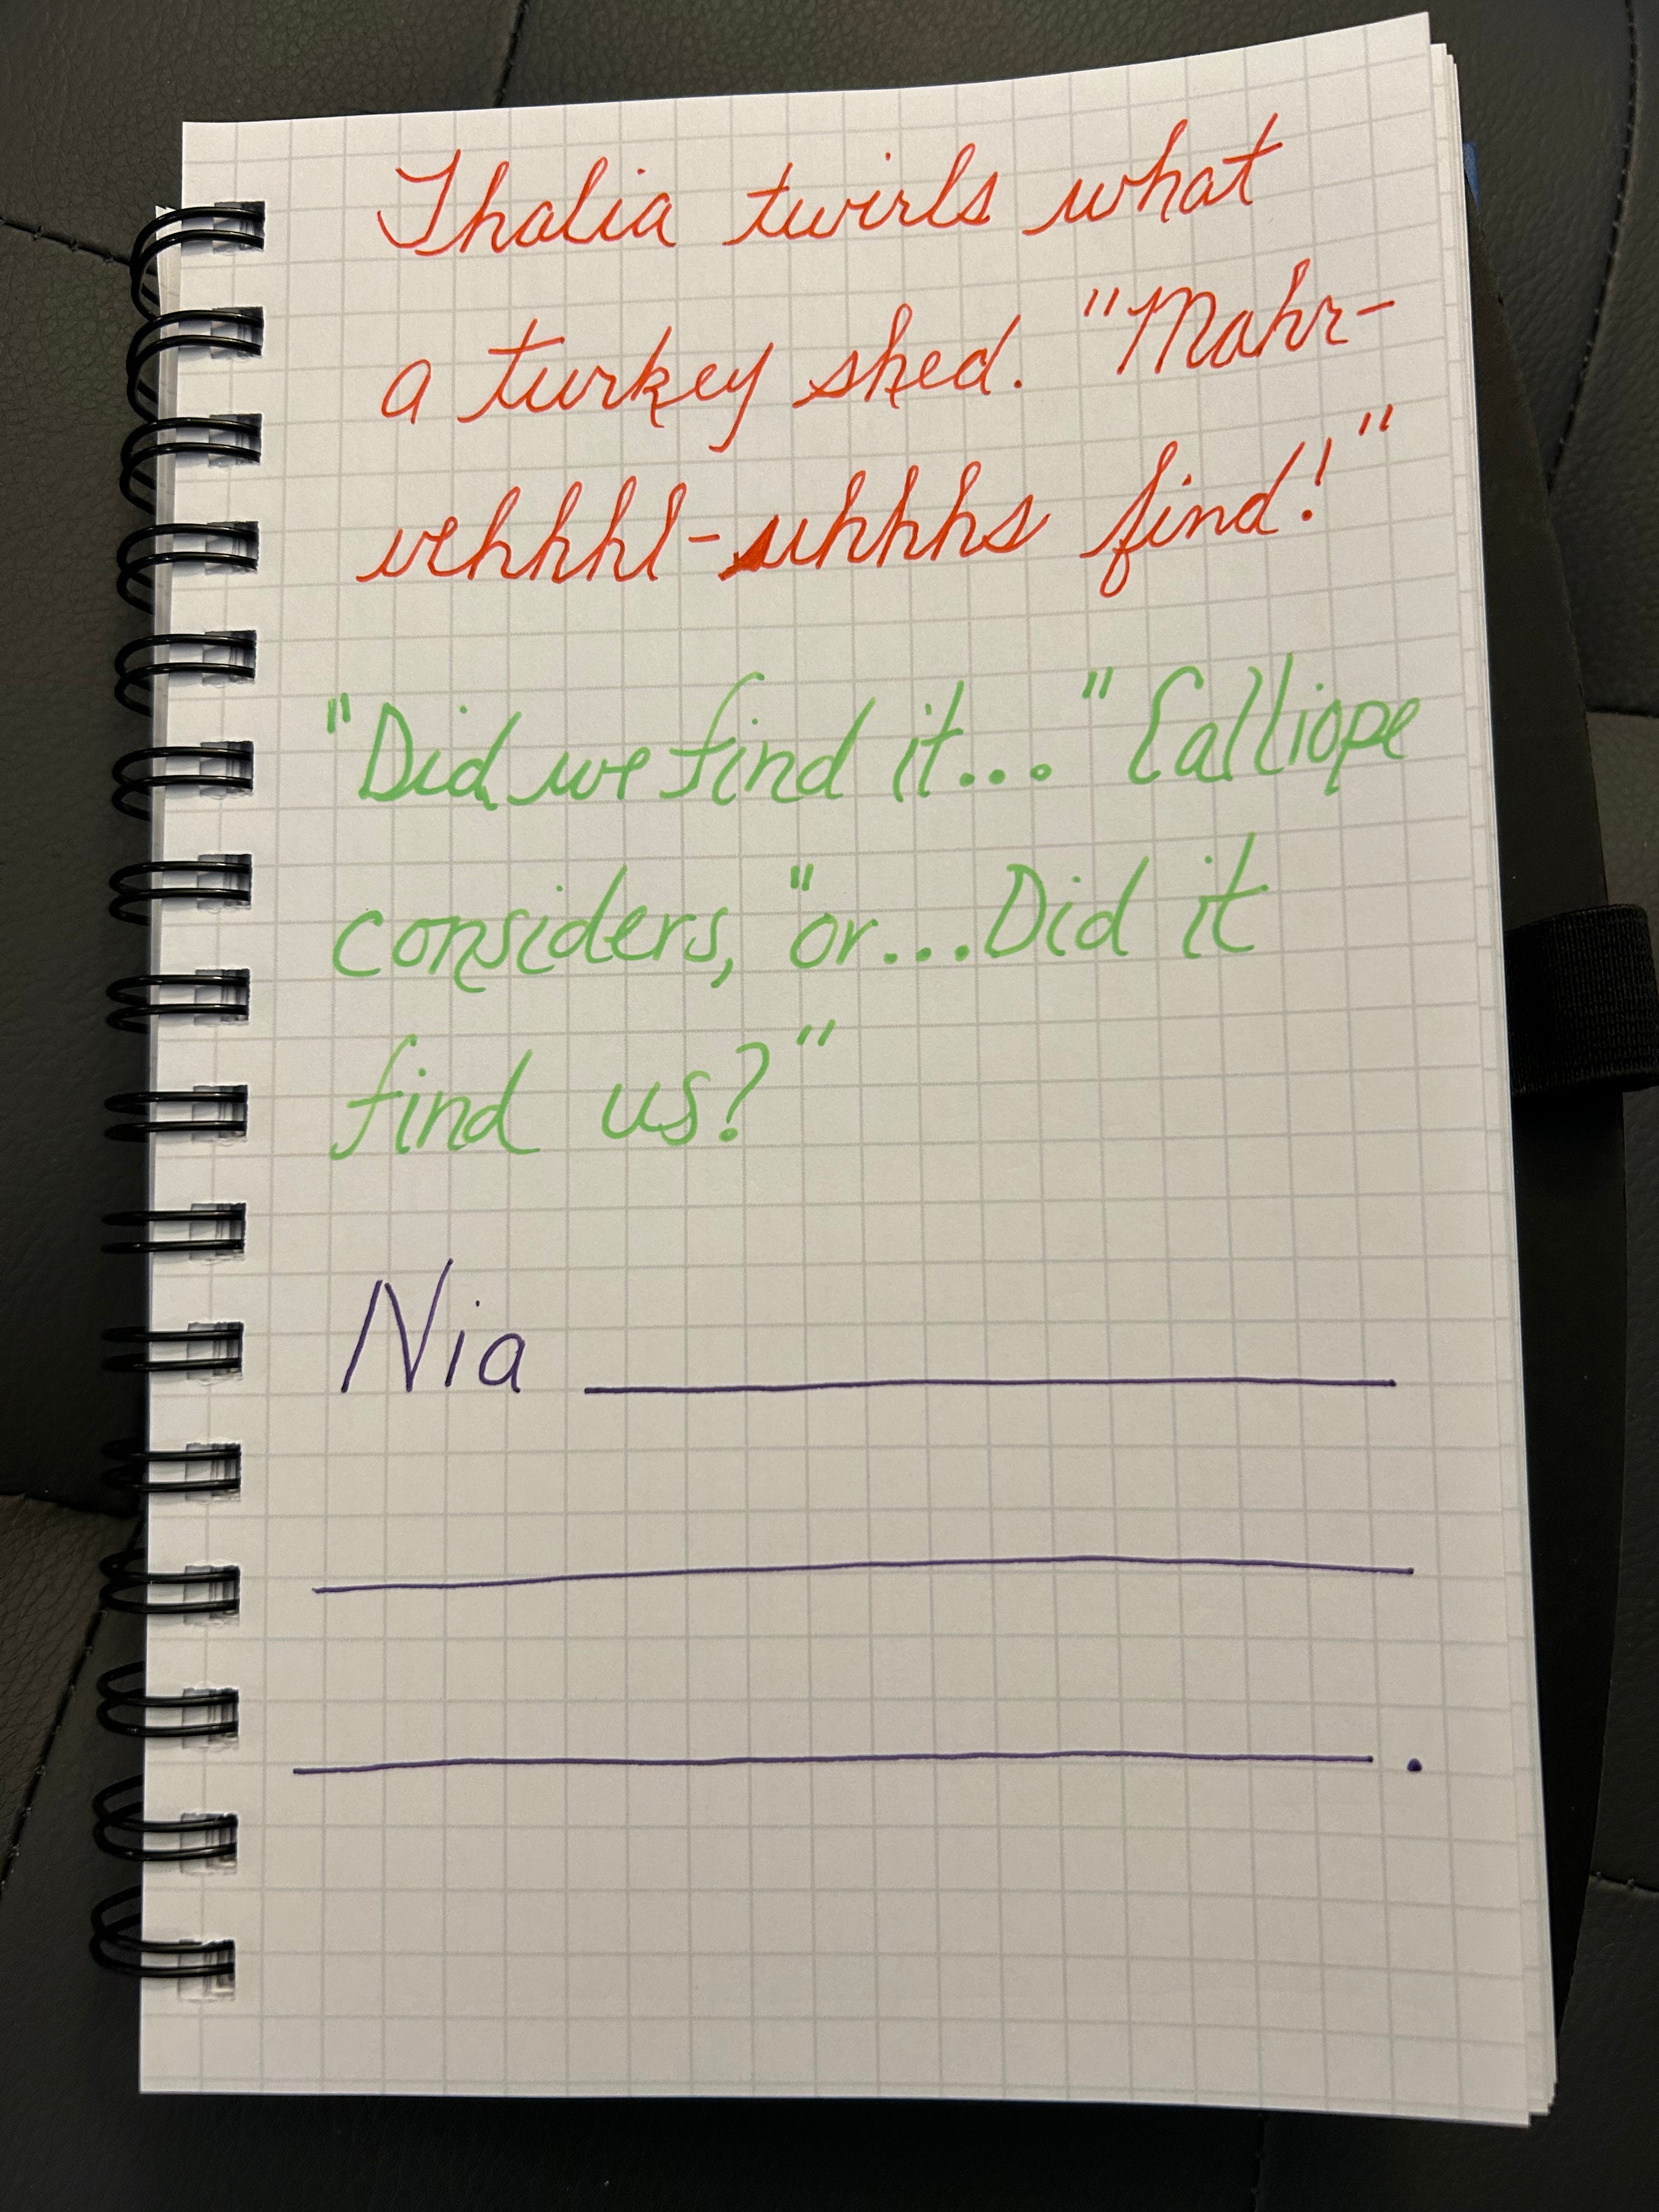 Thalia twirls what
a turkey shed. "Mahr-
vehhhl-uhhhs find!"
"Did we find it..." Calliope
considers, "or...Did it
find us?"
Nia